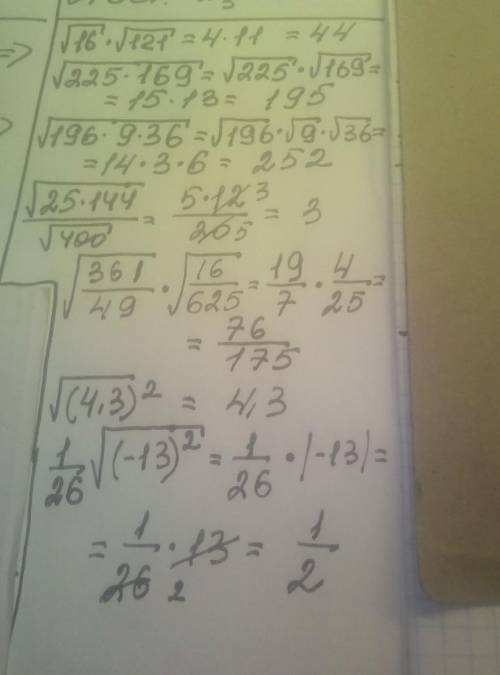 √16 · √121 = 4 · 11 = 44
√(225 · 169) = √225 · √169 =
= 15 · 13 = 195
√(196 · 9 · 36) = √196 · √9 · √36 =
= 14 · 3 · 6 = 252
√(25 · 144) / √400 = 5 · 12 3 / 20 5 = 3
√(361/49) · √(16/625) = 19/7 · 4/25 =
= 76/175
√(4,3)² = 4,3
1/26 √((-13)²) = 1/26 · |-13| =
= 1/26 2 · 13 = 1/2